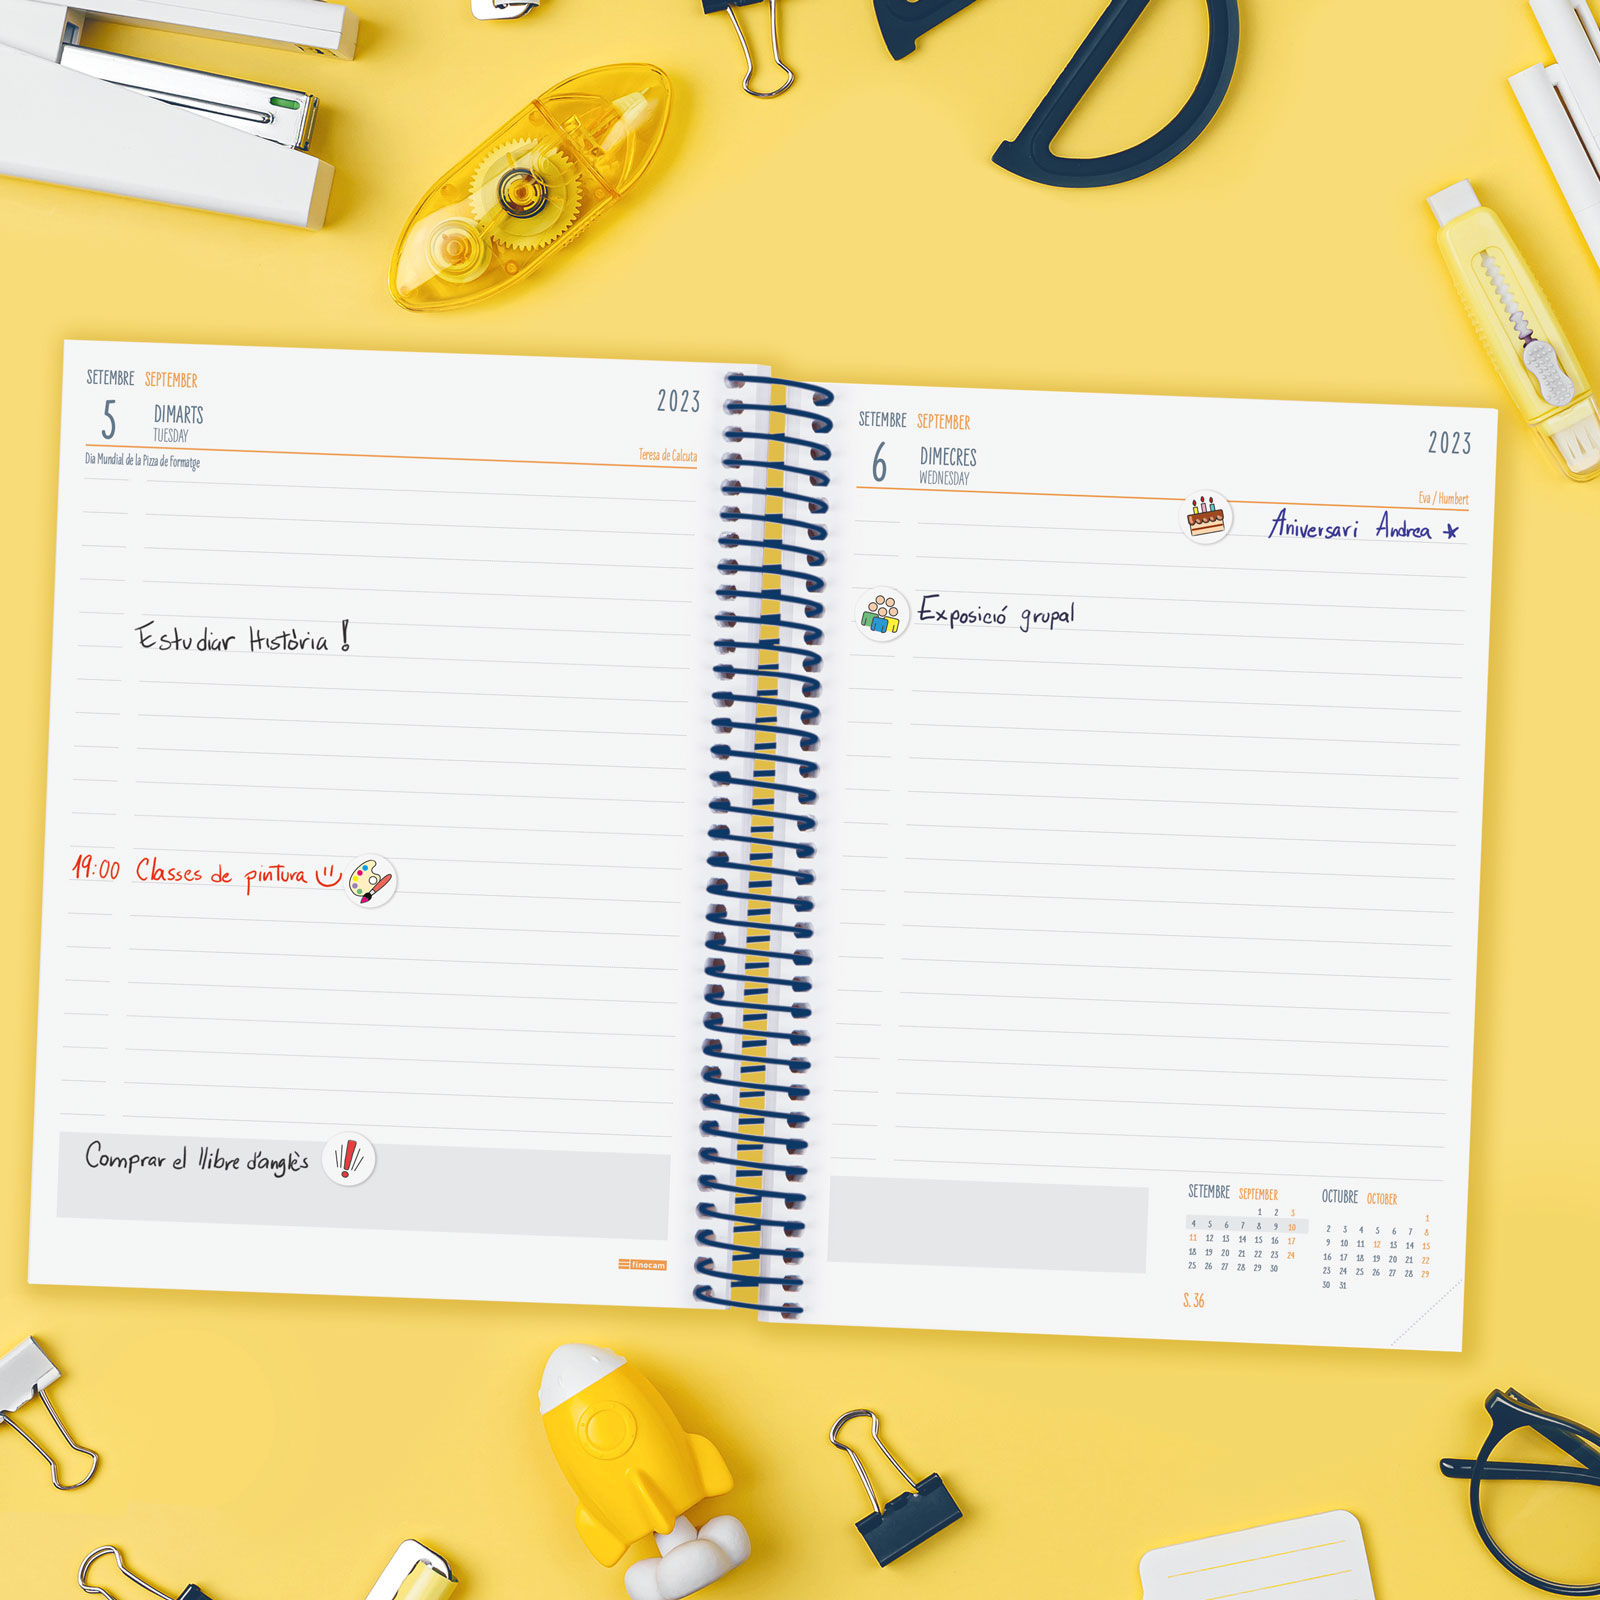 SETEMBRE SEPTEMBER
2023
5 DIMARTS
TUESDAY
Dia Mundial de la Pizza de Formatge
Teresa de Calcuta
Estudiar Història !
19:00 Classes de pintura
Comprar el llibre d'anglès
finocam
SETEMBRE SEPTEMBER
2023
6 DIMECRES
WEDNESDAY
Eva / Humbert
Aniversari Andrea
Exposició grupal
SETEMBRE SEPTEMBER
1 2 3
4 5 6 7 8 9 10
11 12 13 14 15 16 17
18 19 20 21 22 23 24
25 26 27 28 29 30
OCTUBRE OCTOBER
1
2 3 4 5 6 7 8
9 10 11 12 13 14 15
16 17 18 19 20 21 22
23 24 25 26 27 28 29
30 31
S. 36